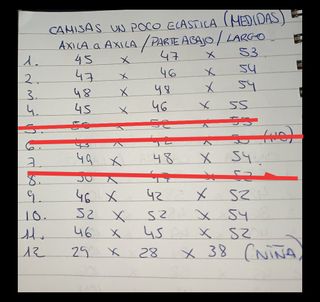 CAMISAS UN POCO ELASTICA (MEDIDAS)
AXILA a AXILA / PARTE ABAJO / LARGO.
1. 45 x 47 x 53
2. 47 x 46 x 54
3. 48 x 48 x 54
4. 45 x 46 x 55
5. 50 x 52 x 55
6. x x
7. 49 x 48 x 54.
8. 50 x 47 x 52
9. 46 x 42 x 52
10. 52 x 52 x 54
11. 46 x 45 x 52
12 29 x 28 x 38 (NIÑA)